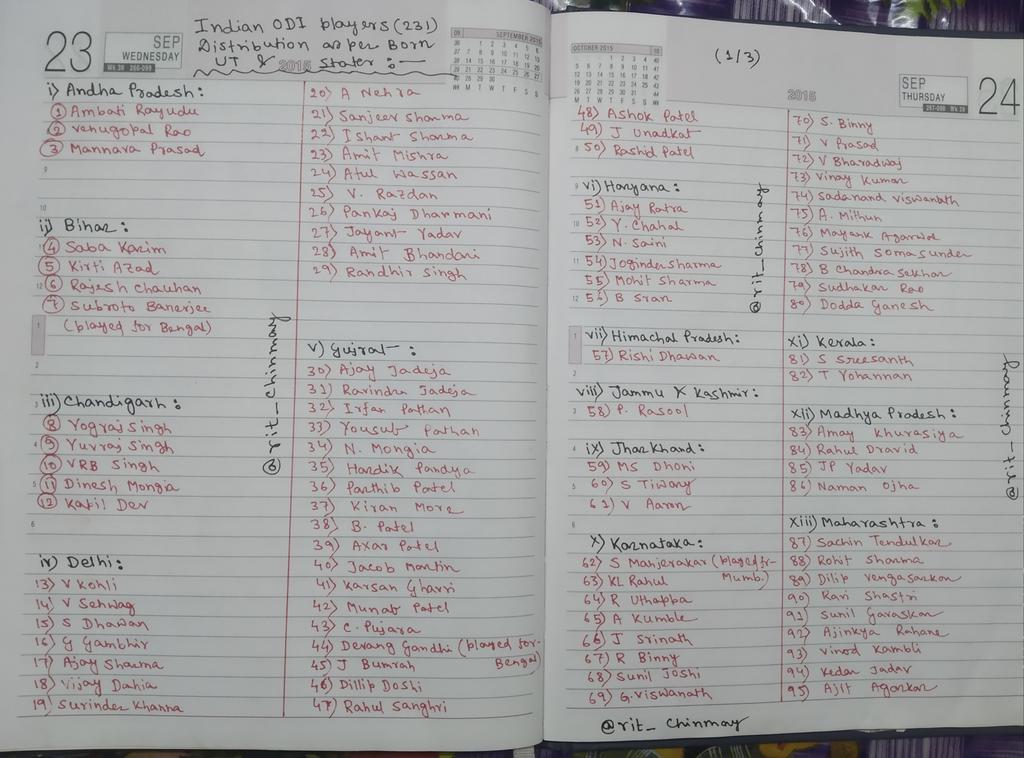 23
SEP
WEDNESDAY
Wk 39 266-099
Indian ODI players (231)
Distribution as per Born
UT & States :-
2015
SEPTEMBER 2015
i) Andhra Pradesh :
① Ambati Rayudu
② Venugopal Rao
③ Mannava Prasad
ii) Bihar :
④ Saba Karim
⑤ Kirti Azad
⑥ Rajesh Chauhan
⑦ Subroto Banerjee
(played for Bengal)
iii) Chandigarh :
⑧ Yograj Singh
⑨ Yuvraj Singh
⑩ VRB Singh
⑪ Dinesh Mongia
⑫ Kapil Dev
iv) Delhi :
13) V Kohli
14) V Sehwag
15) S Dhawan
16) G Gambhir
17) Ajay Sharma
18) Vijay Dahia
19) Surinder Khanna
20) A Nehra
21) Sanjeev Sharma
22) Ishant Sharma
23) Amit Mishra
24) Atul Wassan
25) V. Razdan
26) Pankaj Dharmani
27) Jayant Yadav
28) Amit Bhandari
29) Randhir Singh
v) Gujrat :
30) Ajay Jadeja
31) Ravindra Jadeja
32) Irfan Pathan
33) Yousuf Pathan
34) N. Mongia
35) Hardik Pandya
36) Parthib Patel
37) Kiran More
38) B. Patel
39) Axar Patel
40) Jacob Martin
41) Karsan Ghavri
42) Munaf Patel
43) C. Pujara
44) Devang Gandhi (played for-
Bengal)
45) J Bumrah
46) Dillip Doshi
47) Rahul Sanghvi
@rit_chinmay
OCTOBER 2015
(1/3)
2015
SEP
THURSDAY
267-098 Wk 39
24
48) Ashok Patel
49) J Unadkat
50) Rashid Patel
vi) Haryana :
51) Ajay Ratra
52) Y. Chahal
53) N. Saini
54) Joginder Sharma
55) Mohit Sharma
56) B Sran
vii) Himachal Pradesh :
57) Rishi Dhawan
viii) Jammu & Kashmir :
58) P. Rasool
ix) Jharkhand :
59) MS Dhoni
60) S Tiwary
61) V Aaron
x) Karnataka :
62) S Manjerakar (played fr-
Mumb.)
63) KL Rahul
64) R Uthappa
65) A Kumble
66) J Srinath
67) R Binny
68) Sunil Joshi
69) G. Viswanath
70) S. Binny
71) V Prasad
72) V Bharadwaj
73) Vinay Kumar
74) Sadanand Viswanath
75) A. Mithun
76) Mayank Agarwal
77) Sujith Somasunder
78) B Chandra Sekhar
79) Sudhakar Rao
80) Dodda Ganesh
xi) Kerala :
81) S Sreesanth
82) T Yohannan
xii) Madhya Pradesh :
83) Amay Khurasiya
84) Rahul Dravid
85) JP Yadav
86) Naman Ojha
xiii) Maharashtra :
87) Sachin Tendulkar
88) Rohit Sharma
89) Dilip Vengasarkar
90) Ravi Shastri
91) Sunil Gavaskar
92) Ajinkya Rahane
93) Vinod Kambli
94) Kedar Jadav
95) Ajit Agarkar
@rit_chinmay
@rit_chinmay
@rit_chinmay